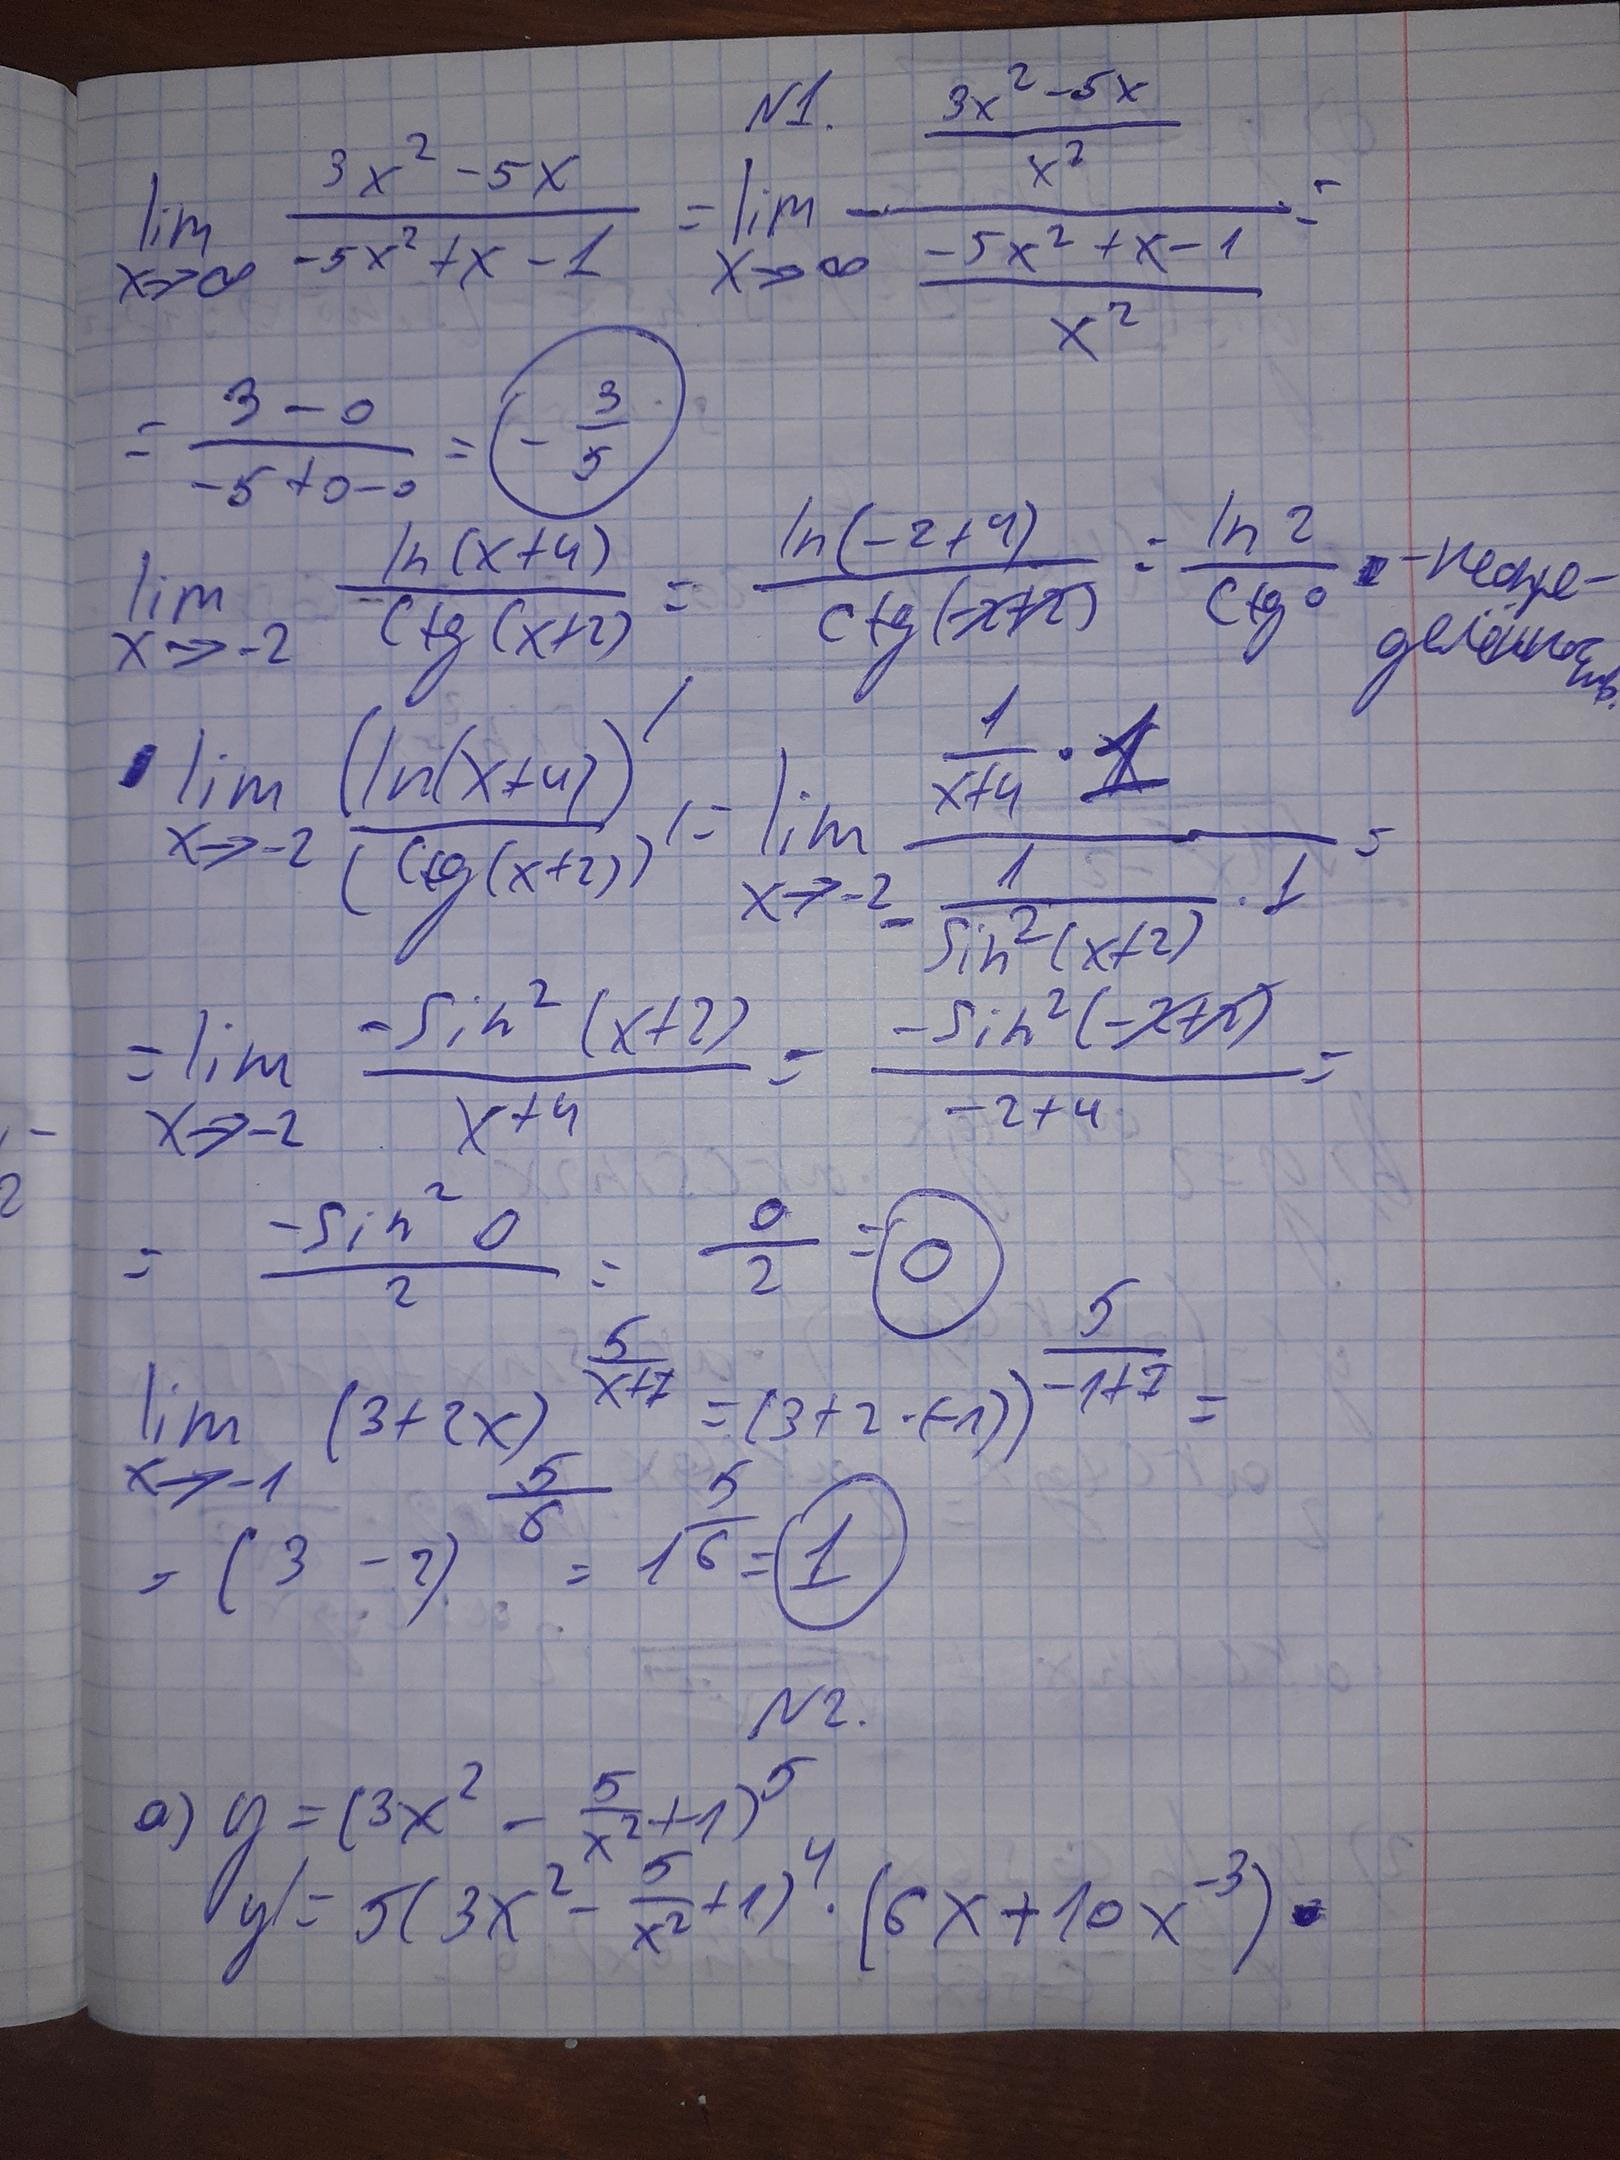 N1.
lim x→∞ (3x² - 5x)/(-5x² + x - 1) = lim x→∞ ((3x² - 5x)/x²)/((-5x² + x - 1)/x²) =
= (3 - 0)/(-5 + 0 - 0) = -3/5
lim x→-2 ln(x+4)/ctg(x+2) = ln(-2+4)/ctg(-2+2) = ln 2/ctg 0 - неопре-
делённость.
lim x→-2 (ln(x+4))'/(ctg(x+2))' = lim x→-2 (1/(x+4) · 1)/(-1/sin²(x+2) · 1) =
= lim x→-2 -sin²(x+2)/(x+4) = -sin²(-2+2)/(-2+4) =
= -sin² 0/2 = 0/2 = 0
lim x→-1 (3+2x)^(5/(x+7)) = (3+2·(-1))^(5/(-1+7)) =
= (3 - 2)^(5/6) = 1^(5/6) = 1
N2.
а) y = (3x² - 5/x² + 1)⁵
y' = 5(3x² - 5/x² + 1)⁴ · (6x + 10x⁻³)